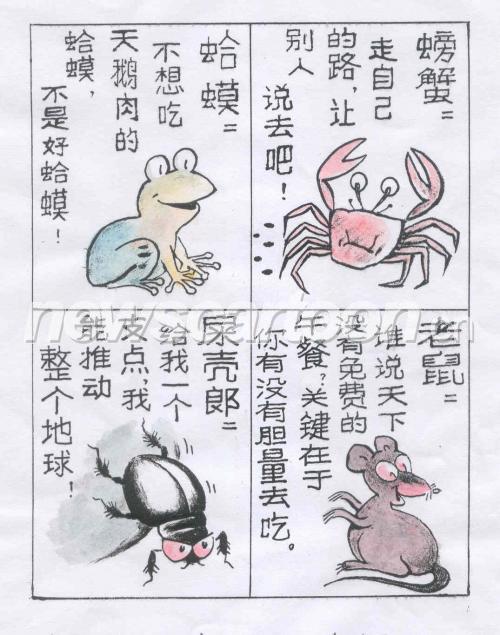 螃蟹：
走自己
的路，让
别人
说去吧！
蛤蟆：
不想吃
天鹅肉的
蛤蟆，
不是好蛤蟆！
老鼠：
谁说天下
没有免费的
午餐？关键在于
你有没有胆量去吃。
屎壳郎：
给我一个
支点，我
能推动
整个地球！
newscartoon.cn